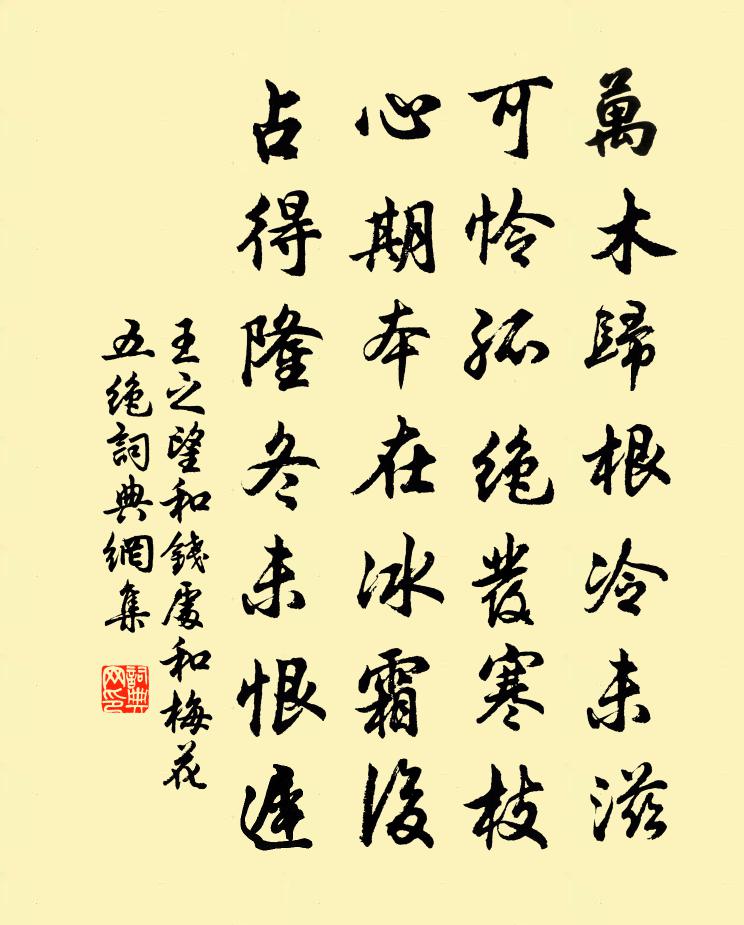 萬木歸根冷未滋
可怜孤絶發寒枝
心期本在冰霜後
占得隆冬未恨遲
王之望和錢處和梅花
五絶詞典網集
詞典
网印